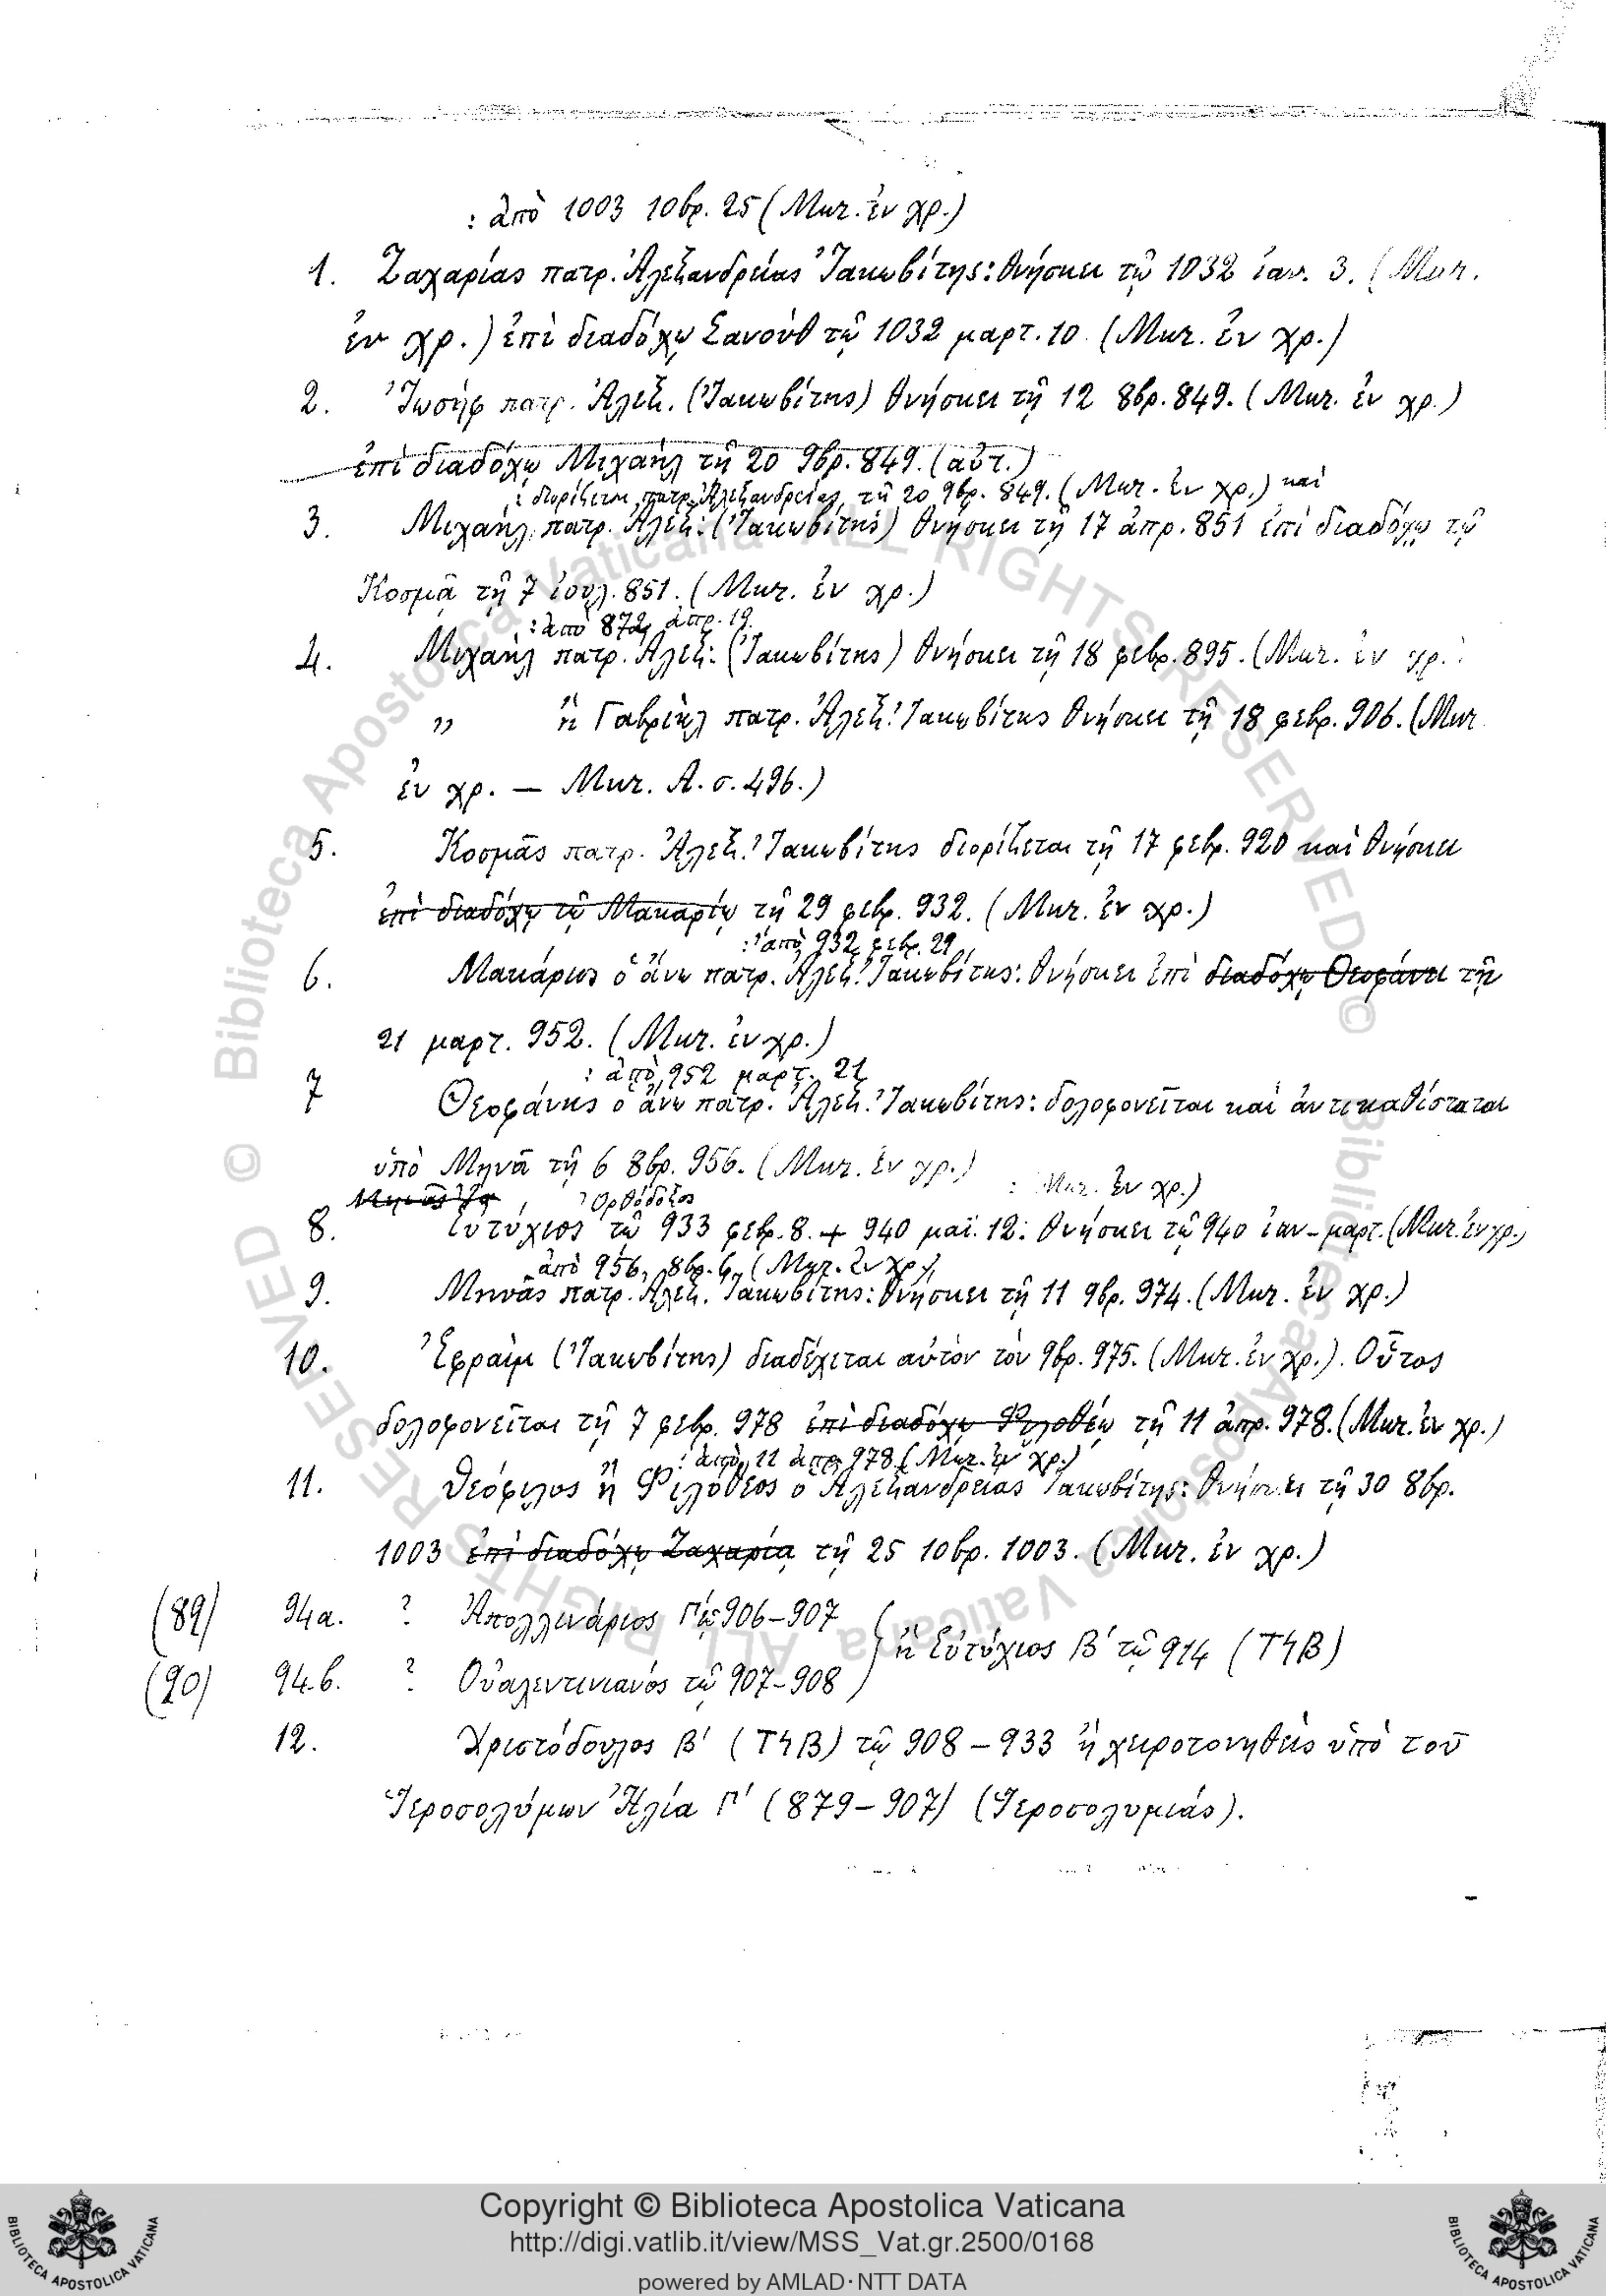 : ἀπὸ 1003 10βρ. 25 (Μικ. ἐν χρ.)
1. Ζαχαρίας πατρ. Ἀλεξανδρείας Ἰακωβίτης: θνήσκει τῷ 1032 ἰαν. 3. (Μικ.
ἐν χρ.) ἐπὶ διαδόχῳ Σανοὺθ τῷ 1032 μαρτ. 10. (Μικ. ἐν χρ.)
2. Ἰωσὴφ πατρ. Ἀλεξ. (Ἰακωβίτης) θνήσκει τῇ 12 8βρ. 849. (Μικ. ἐν χρ.)
ἐπὶ διαδόχῳ Μιχαὴλ τῇ 20 9βρ. 849. (αὐτ.)
: διορίζεται πατρ. Ἀλεξανδρείας τῇ 20 9βρ. 849. (Μικ. ἐν χρ.) καὶ
3. Μιχαὴλ πατρ. Ἀλεξ: (Ἰακωβίτης) θνήσκει τῇ 17 ἀπρ. 851 ἐπὶ διαδόχῳ τῷ
Κοσμᾷ τῇ 7 ἰουλ. 851. (Μικ. ἐν χρ.)
: ἀπὸ 872, ἀπρ. 19.
4. Μιχαὴλ πατρ. Ἀλεξ: (Ἰακωβίτης) θνήσκει τῇ 18 φεβρ. 895. (Μικ. ἐν χρ.
„ ἢ Γαβριὴλ πατρ. Ἀλεξ. Ἰακωβίτης θνήσκει τῇ 18 φεβρ. 906. (Μικ.
ἐν χρ. — Μικ. Α. σ. 496.)
5. Κοσμᾶς πατρ. Ἀλεξ. Ἰακωβίτης διορίζεται τῇ 17 φεβρ. 920 καὶ θνήσκει
ἐπὶ διαδόχῳ τῷ Μακαρίῳ τῇ 29 φεβρ. 932. (Μικ. ἐν χρ.)
: ἀπὸ 932 φεβρ. 29
6. Μακάριος ὁ ἄνω πατρ. Ἀλεξ. Ἰακωβίτης: θνήσκει ἐπὶ διαδόχῳ Θεοφάνει τῇ
21 μαρτ. 952. (Μικ. ἐν χρ.)
: ἀπὸ 952 μαρτ. 21
7 Θεοφάνης ὁ ἄνω πατρ. Ἀλεξ. Ἰακωβίτης: δολοφονεῖται καὶ ἀντικαθίσταται
ὑπὸ Μηνᾶ τῇ 6 8βρ. 956. (Μικ. ἐν χρ.)
: Μικ. ἐν χρ.)
Ὀρθόδοξος
8. Εὐτύχιος τῷ 933 φεβρ. 8. + 940 μαΐ. 12: θνήσκει τῷ 940 ἰαν-μαρτ. (Μικ. ἐν χρ.)
ἀπὸ 956, 8βρ. 6, (Μικ. ἐν χρ.)
9. Μηνᾶς πατρ. Ἀλεξ. Ἰακωβίτης: θνήσκει τῇ 11 9βρ. 974. (Μικ. ἐν χρ.)
10. Ἐφραὶμ (Ἰακωβίτης) διαδέχεται αὐτὸν τὸν 9βρ. 975. (Μικ. ἐν χρ.). Οὗτος
δολοφονεῖται τῇ 7 φεβρ. 978 ἐπὶ διαδόχῳ Φιλοθέῳ τῇ 11 ἀπρ. 978. (Μικ. ἐν χρ.)
: ἀπὸ 11 ἀπρ. 978 (Μικ. ἐν χρ.)
11. Θεόφιλος ἢ Φιλόθεος ὁ Ἀλεξανδρείας Ἰακωβίτης: θνήσκει τῇ 30 8βρ.
1003 ἐπὶ διαδόχῳ Ζαχαρίᾳ τῇ 25 10βρ. 1003. (Μικ. ἐν χρ.)
(89) 94a. ? Ἀπολλινάριος Γ΄ 906-907
ἢ Εὐτύχιος Β΄ τῷ 914 (ΤϞΒ)
(90) 94b. ? Οὐαλεντινιανός τῷ 907-908
12. Χριστόδουλος Β΄ (ΤϞΒ) τῷ 908-933 ἢ χειροτονηθεὶς ὑπὸ τοῦ
Ἱεροσολύμων Ἠλία Γ΄ (879-907) (Ἱεροσολυμιάς).
© Biblioteca Apostolica Vaticana ALL RIGHTS RESERVED ©
Biblioteca Apostolica Vaticana ALL RIGHTS RESERVED
BIBLIOTECA APOSTOLICA VATICANA
Copyright © Biblioteca Apostolica Vaticana
http://digi.vatlib.it/view/MSS_Vat.gr.2500/0168
powered by AMLAD·NTT DATA
BIBLIOTECA APOSTOLICA VATICANA